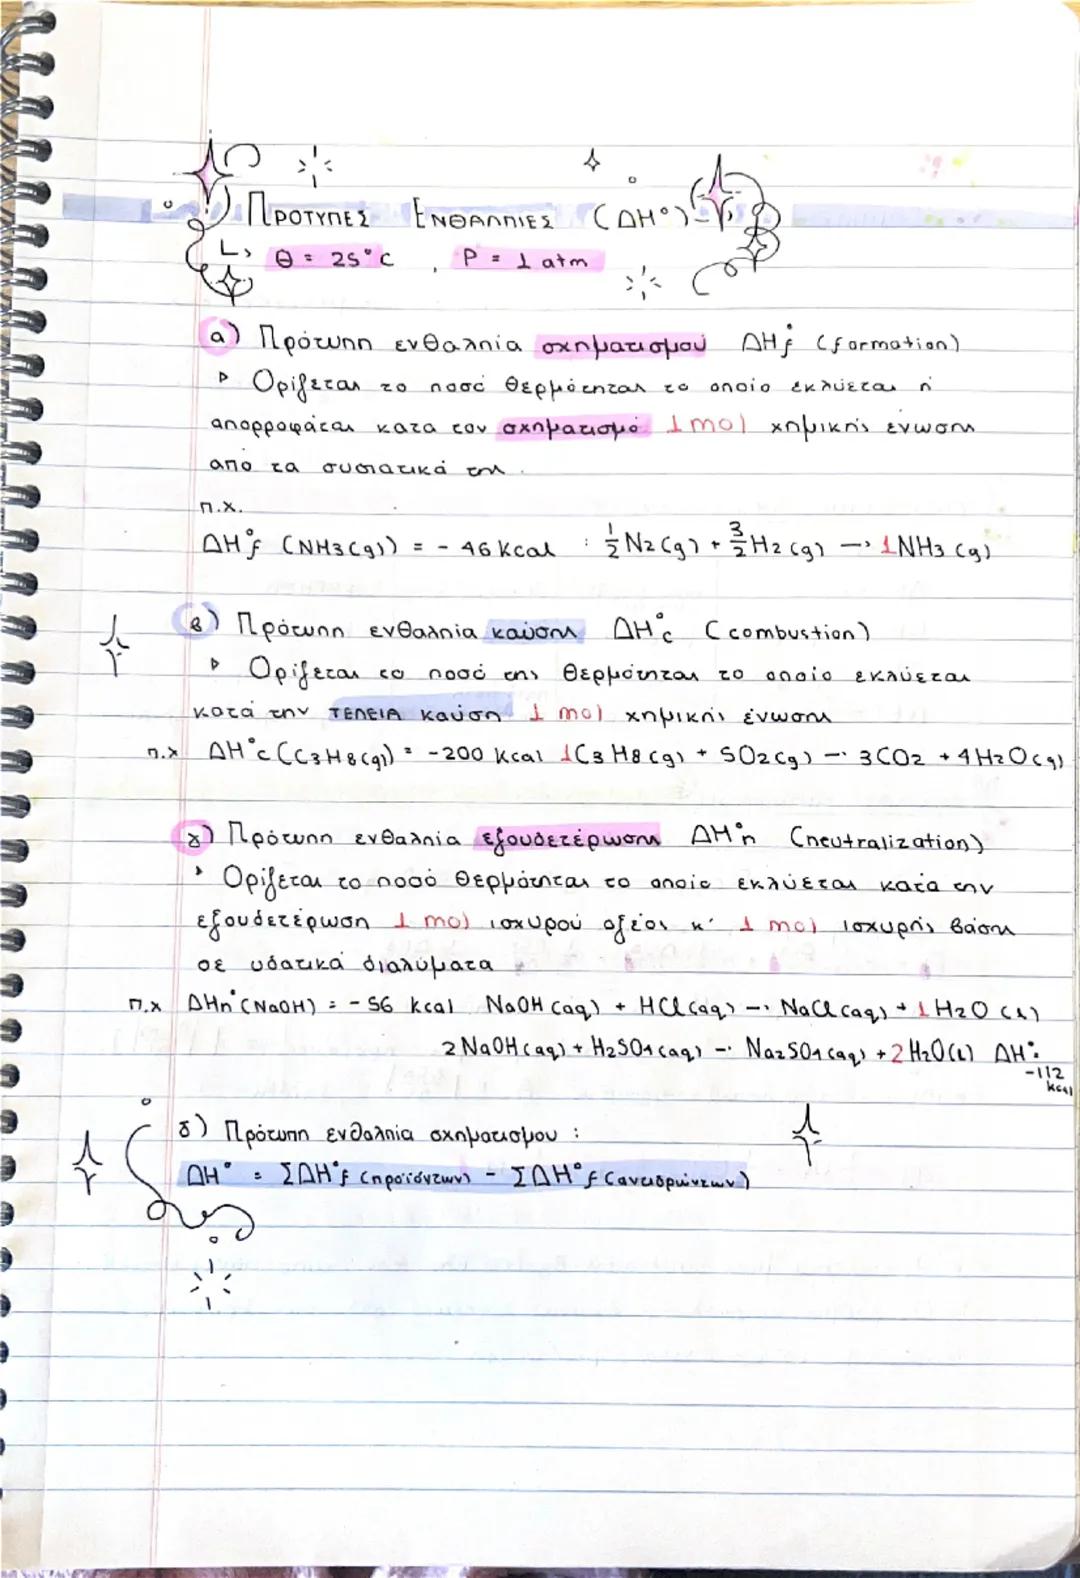 ΠΡΟΤΥΠΕΣ ΕΝΘΑΛΠΙΕΣ (ΔΗ°)
↳ θ = 25°C , P = 1 atm
α) Πρότυπη ενθαλπία σχηματισμού ΔΗ°f (formation)
▹ Ορίζεται το ποσό θερμότητας το οποίο εκλύεται ή
απορροφάται κατα τον σχηματισμό 1 mol χημικής ένωσης
από τα συστατικά της.
π.χ.
ΔΗ°f (NH3(g)) = - 46 kcal : 1/2 N2(g) + 3/2 H2(g) → 1NH3(g)
β) Πρότυπη ενθαλπία καύσης ΔΗ°c (combustion)
▹ Ορίζεται το ποσό της θερμότητας το οποίο εκλύεται
κατά την ΤΕΛΕΙΑ καύση 1 mol χημικής ένωσης
π.χ ΔΗ°c (C3H8(g)) = -200 kcal 1C3H8(g) + 5O2(g) → 3CO2 + 4H2O(g)
γ) Πρότυπη ενθαλπία εξουδετέρωσης ΔΗ°n (neutralization)
▹ Ορίζεται το ποσό θερμότητας το οποίο εκλύεται κατα την
εξουδετέρωση 1 mol ισχυρού οξέος κ' 1 mol ισχυρής βάσης
σε υδατικά διαλύματα
π.χ ΔΗn°(NaOH) = -56 kcal NaOH(aq) + HCl(aq) → NaCl(aq) + 1H2O(l)
2NaOH(aq) + H2SO4(aq) → Na2SO4(aq) + 2H2O(l) ΔΗ°=
-112
kcal
δ) Πρότυπη ενθαλπία σχηματισμου :
ΔΗ° = ΣΔΗ°f (προϊόντων) - ΣΔΗ°f (αντιδρώντων)